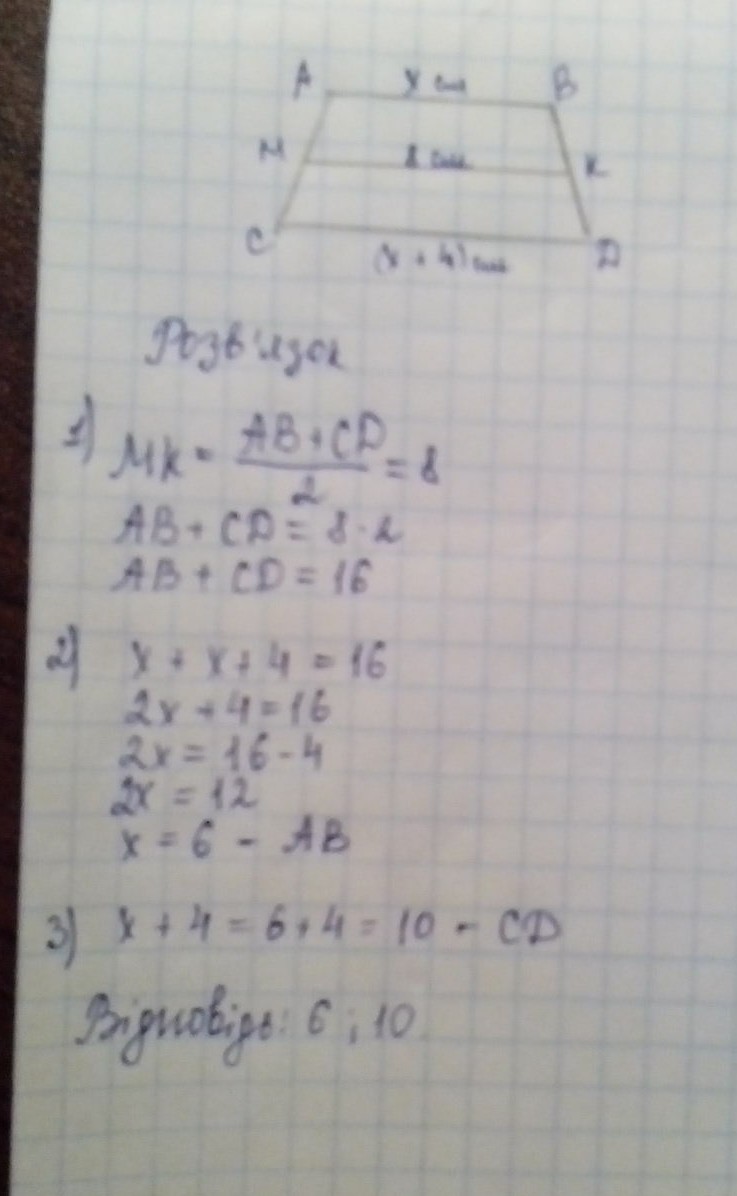 A x см B
M 8 см K
C (x + 4) см D
Розв'язок
1) MK = AB + CD / 2 = 8
AB + CD = 8 · 2
AB + CD = 16
2) x + x + 4 = 16
2x + 4 = 16
2x = 16 - 4
2x = 12
x = 6 - AB
3) x + 4 = 6 + 4 = 10 - CD
Відповідь: 6 ; 10